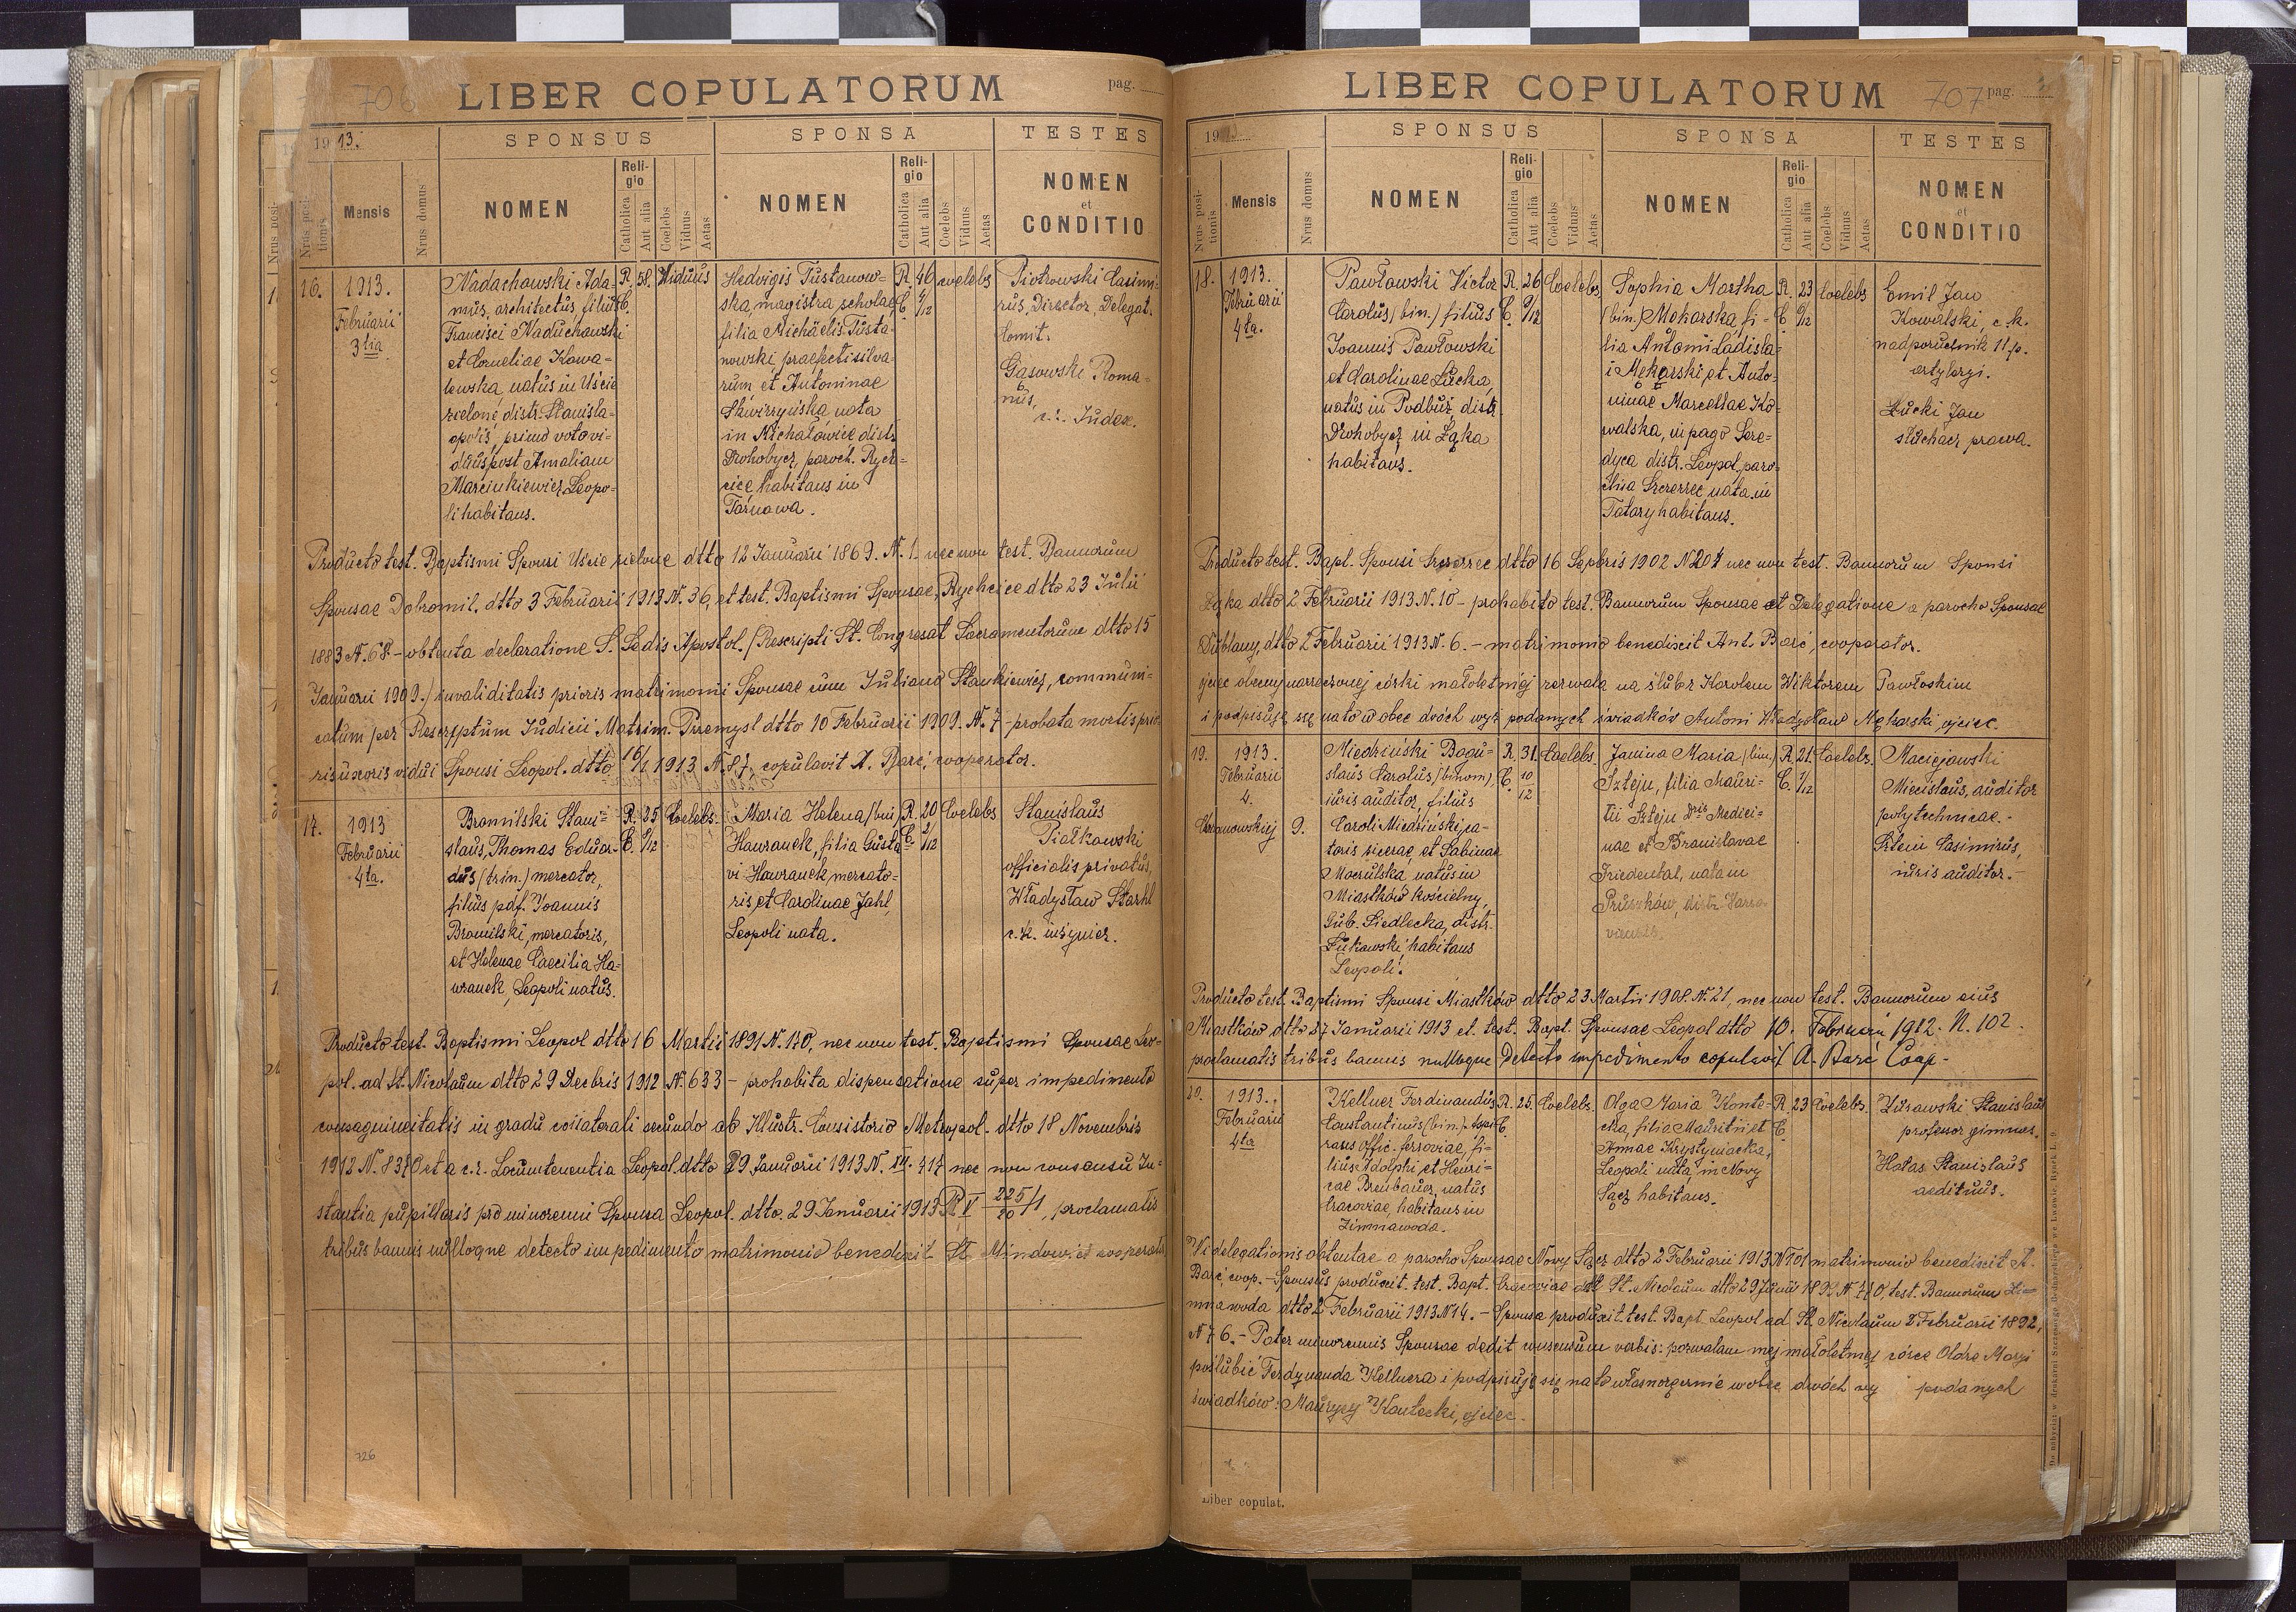 706 LIBER COPULATORUM pag.
1913.
SPONSUS
SPONSA
TESTES
Nrus positionis
Mensis
Nrus domus
NOMEN
Religio
Catholica
Aut alia
Coelebs
Viduus
Aetas
NOMEN
Religio
Catholica
Aut alia
Coelebs
Vidua
Aetas
NOMEN
et
CONDITIO
16.
1913.
Februarii
3tia
Nadachowski Ada-
mus, architectus, filius
Francisci Naduchowski
et Corneliae Kowa-
lewska, natus in Uście
zielone, distr. Stanisla-
opolis, primo voto vi-
duus post Amaliam
Marcinkiewicz, Leopo-
li habitans.
R. C.
58.
Viduus
Hedvigis Tustanow-
ska, magistra scholae,
filia Michaëlis Tusta-
nowski, praefecti silva-
rum et Antoninae
Skwirzyńska, nata
in Michałowice distr.
Drohobycz, paroch. Rych-
cice, habitans in
Tarnawa.
R. C.
46 4/12
coelebs
Piotrowski Casimi-
rus, Director, Delegat.
Comit.
Gasowski Roma-
nus,
c. r. Judex.
Producto test. Baptismi Sponsi Uście zielone dtto 12 Januarii 1869. N. 1. nec non test. Bannorum
Sponsae Dobromil. dtto 3 Februarii 1913 N. 36, et test. Baptismi Sponsae, Rychcice dtto 23 Julii
1883 N. 68 - obtenta declaratione S. Sedis Apostol. (Rescripti St. Congregat Sacramentorum dtto 15
Januarii 1909.) invaliditatis prioris matrimonii Sponsae cum Juliano Stankiewicz, communi-
catum per Rescryptum Judicii Matrim. Przemysl dtto 10 Februarii 1909. N. 7 - probata mortis prio-
ris uxoris vidui Sponsi Leopol. dtto 16/1 1913 N. 87, copulavit A. Barć, cooperator.
17.
1913
Februarii
4ta.
Bromilski Stani-
slaus, Thomas Eduar-
dus (trin.) mercator,
filius pdf. Joannis
Bromilski, mercatoris,
et Helenae Caecilia Ha-
wranek, Leopoli natus.
R. C.
25 9/12
Coelebs.
Maria Helena (bin)
Hawranek, filia Gusta-
vi Hawranek, mercato-
ris, et Carolinae Jahl,
Leopoli nata.
R. C.
20 2/12
Coelebs
Stanislaus
Piatkowski
officialis privatus,
Władysław Starhl
c. k. inżynier.
Producto test. Baptismi Leopol dtto 16 Martii 1891 N. 170, nec non test. Baptismi Sponsae Leo-
pol. ad St. Nicolaum dtto 29 Decbris 1912 N. 633 - prohabita dispensatione super impedimento
consaguineitatis in gradu collaterali secundo ab Illustr. Consistorio Metropol. dtto 18 Novembris
1912 N. 8370 et a c.r. Locumtenentia Leopol. dtto 29 Januarii 1913 N. 717 nec non consensu In-
stantia pupillaris pro minorenni Sponsa Leopol. dtto. 29 Januarii 1913 R V 225/20 /1, proclamatis
tribus bannis nulloque detecto impedimento matrimonio benedixit St Mindowicz cooperator
726
LIBER COPULATORUM 707 pag.
19
SPONSUS
SPONSA
TESTES
Nrus positionis
Mensis
Nrus domus
NOMEN
Religio
Catholica
Aut alia
Coelebs
Viduus
Aetas
NOMEN
Religio
Catholica
Aut alia
Coelebs
Vidua
Aetas
NOMEN
et
CONDITIO
18.
1913.
Februarii
4ta.
Pawłowski Victor
Carolus (bin.) filius
Joannis Pawłowski
et Carolinae Łucka,
natus in Podbuż, distr.
Drohobycz in Łąka
habitans.
R. C.
26 9/12
Coelebs.
Sophia Martha
(bin.) Mękarska, fi-
lia Antoni Ladisla-
i Mękarski, et Anto-
ninae Marcellae Ko-
walska, in pago Sere-
dyca distr. Leopol, paro-
chia Szczerzec nata, in
Tatary habitans.
R. C.
23 9/12
Coelebs
Emil Jan
Kowalski, c. k.
nadporucznik 11 p.
artyleryi.
Łucki Jan
słuchacz prawa.
Producto test. Bapt. Sponsi Szczerzec dtto 16 Sepbris 1902 N 204 nec non test. Bannorum Sponsi
Łąka dtto 2 Februarii 1913 N. 10 - prohabito test. Bannorum Sponsae et Delegatione a parocho Sponsae
Dublany, dtto 2 Februarii 1913 N. 6. - matrimonio benedixit Ant. Barć, cooperator.
ojciec obecny narzeczonej córki małoletniej zezwala na ślub z Karolem Wiktorem Pawłoskim
i podpisuje się na to w obec dwóch wyż podanych świadków Antoni Władysław Mękarski, ojciec.
19.
1913.
Februarii
4.
9.
Miedziński Bogu-
slaus Carolus (binom),
iuris auditor, filius
Caroli Miedziński, sa-
toris sicerae, et Sabinae
Moczulska natus in
Miastków kościelny,
Gub. Siedlecka, distr.
Łukowski, habitans
Leopoli.
R. C.
31. 10/12
Coelebs.
Janina Maria (bin.)
Sztejn, filia Mauri-
tii Sztejn Dris Medici-
nae et Bronislavae
Friedental, natam
Pruszków, distr. Warsa-
viensis.
R. C.
21. 1/12
Coelebs.
Maciejowski
Miecislaus, auditor
polytechnicae. -
Sztein Casimirus,
iuris auditor. -
Producto test. Baptismi Sponsi Miastków dtto 23 Martii 1908. N. 21, nec non test. Bannorum eius
Miastków dtto 27 Januarii 1913 et. test. Bapt. Sponsae Leopol dtto 10. Februarii 1912. N. 102.
proclamatis tribus bannis nulloque detecto impedimento copulavit A. Barć Coop -
20.
1913.
Februarii
4ta
Kellner Ferdinandus
Constantinus (bin.)
offic. ferroviae, fi-
lius Adolphi, et Henri-
cae Brenbauer, natus
Cracoviae, habitans in
Zimnawoda.
R. C.
25.
Coelebs.
Olga Maria Konte-
cka, filia Mauritii et
Annae Krystyniacka,
Leopoli nata, in Nowy
Sącz habitans.
R. C.
23
Coelebs.
Żurawski Stanislaus
professor gimnas.
Hatas Stanislaus
aedituus.
Vi delegationis obtentae a parocho Sponsae Nowy Sącz dtto 2 Februarii 1913 N 101 matrimonio benedixit A.
Barć, coop. - Sponsus produxit. test. Bapt. Cracoviae ad St. Nicolaum dtto 29 Junii N. 780, test. Bannorum Zi-
mnawoda dtto 2 Februarii 1913 N 14. - Sponsa produxit. test. Bapt. Leopol ad St. Nicolaum 2 Februarii 1892,
N 76. - Pater minorennis Sponsae dedit consensum verbis: pozwalam mej małoletniej córce Oldze Maryi
poślubić Ferdynanda Kellnera i podpisuję się na to własnoręcznie wobec dwóch wyż podanych
świadków: Maurycy Kontecki, ojciec.
Liber copulat.